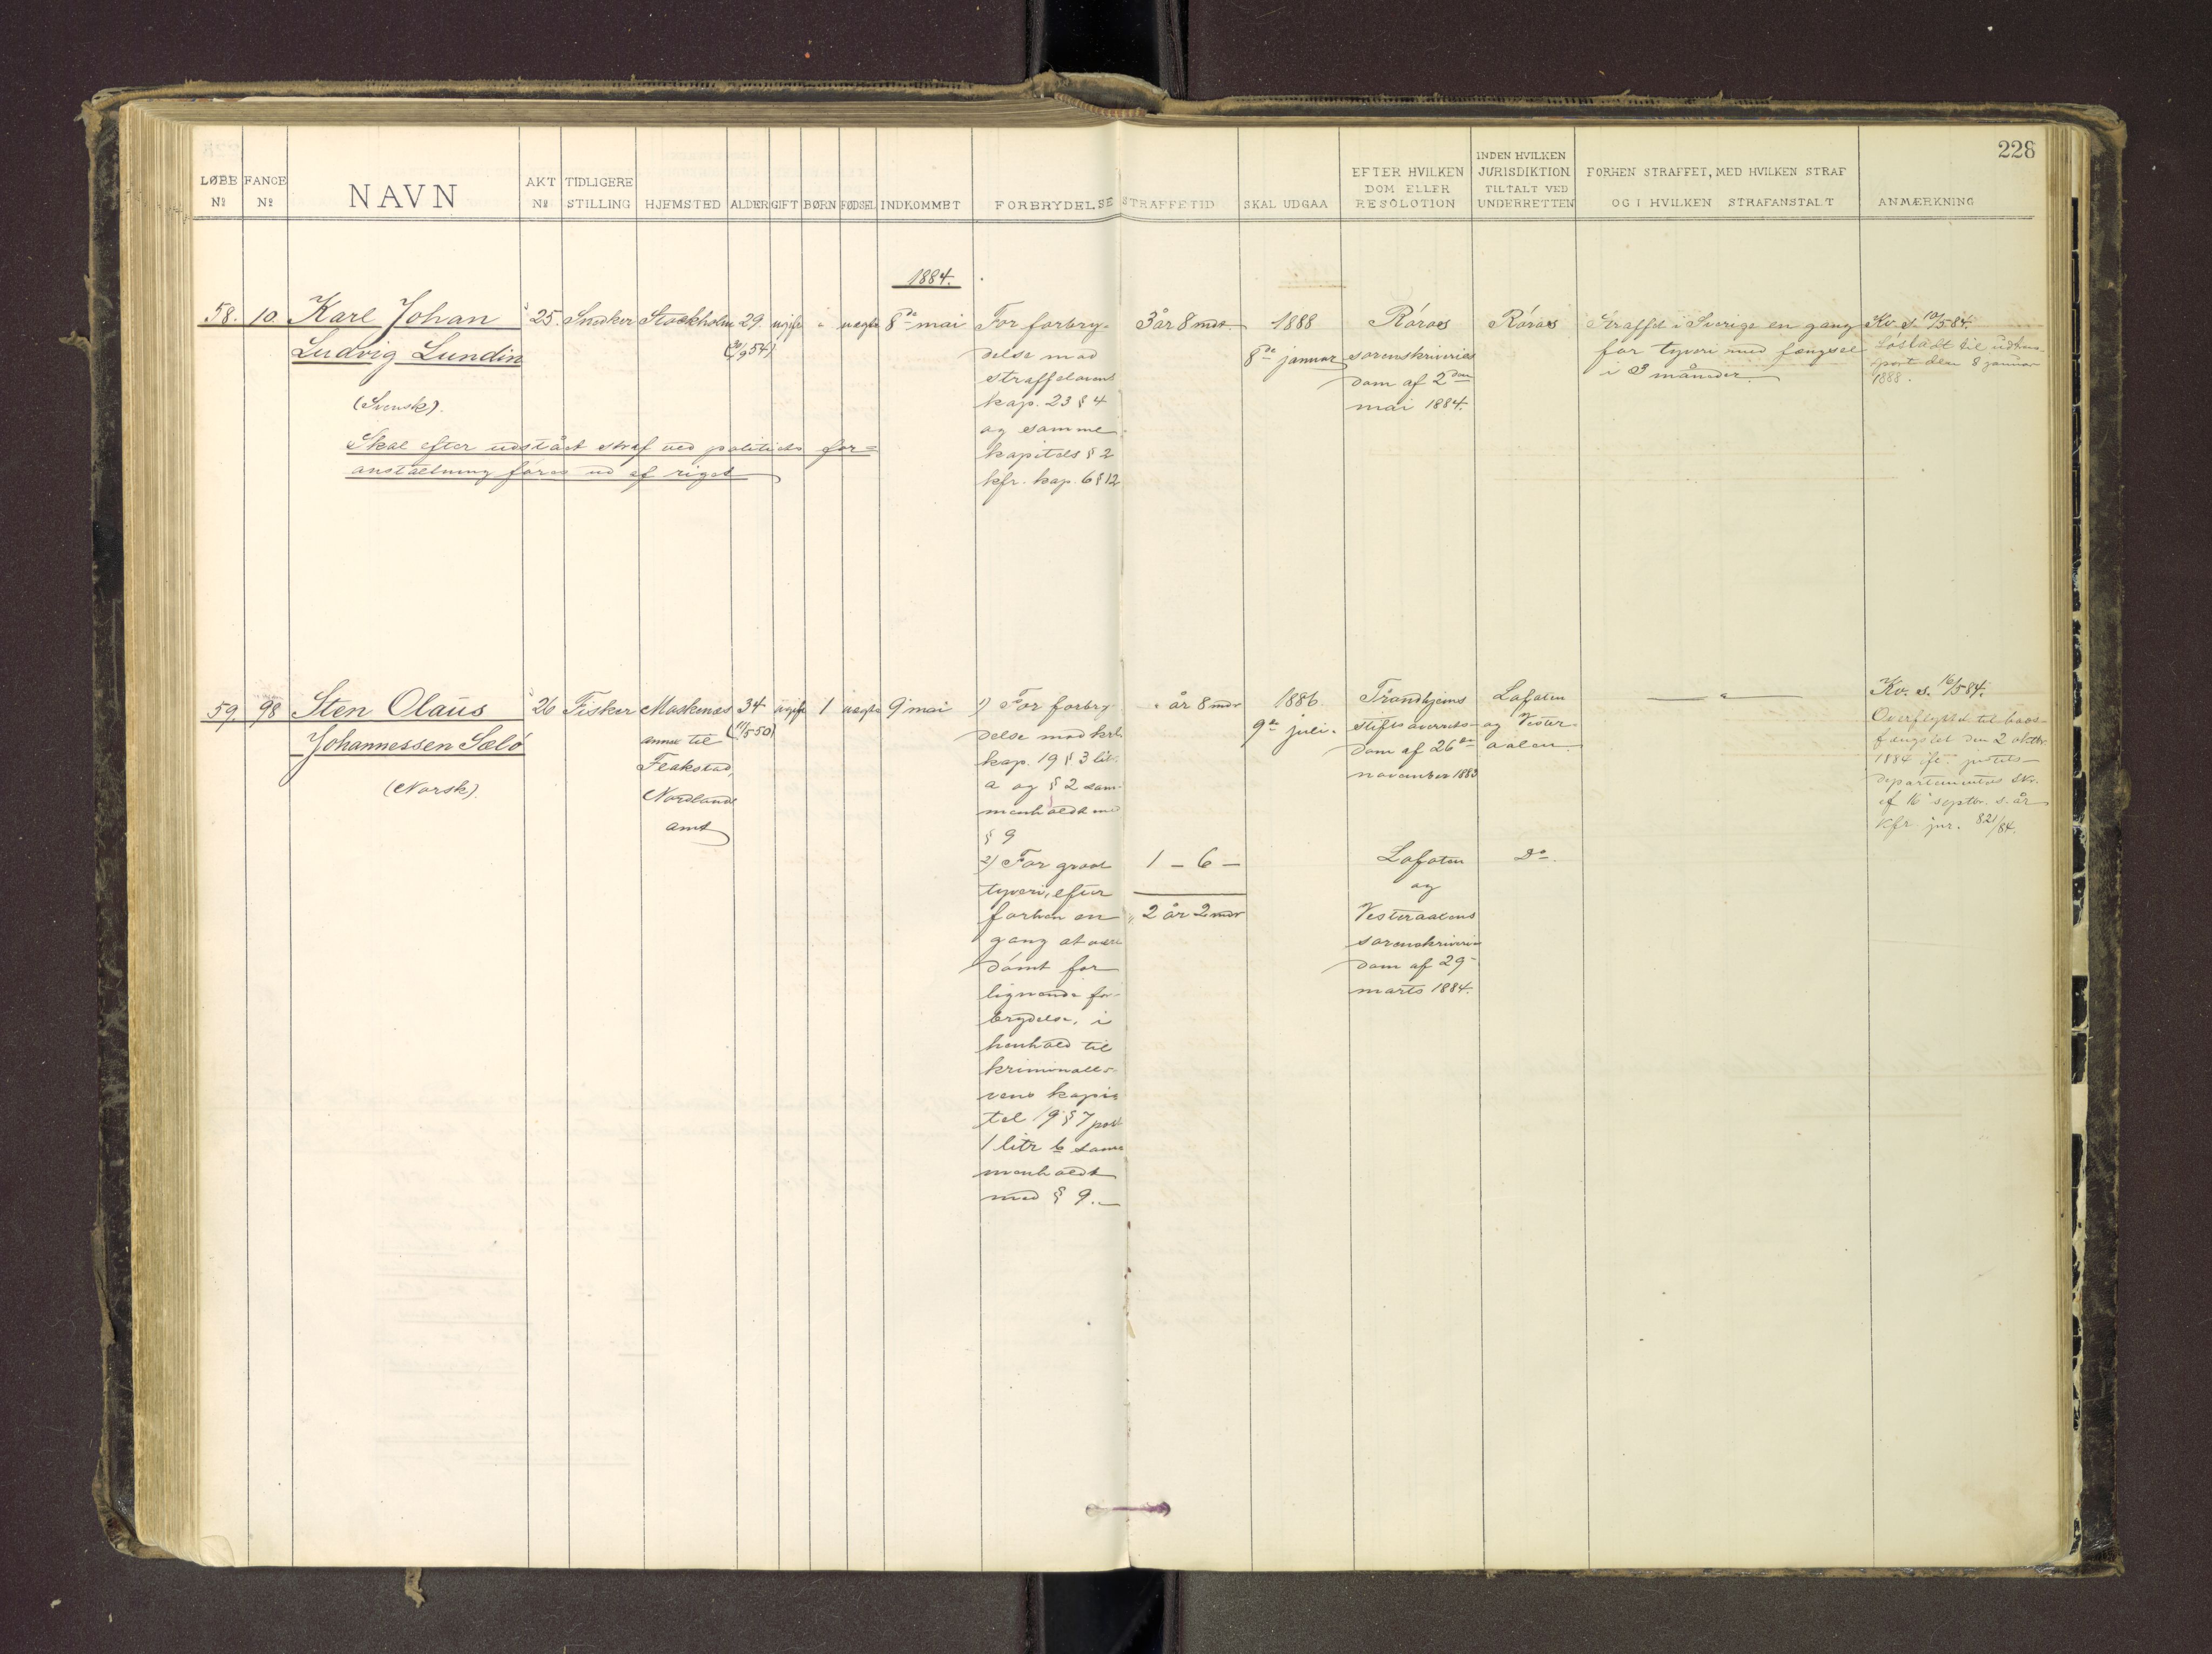 228
LØBE No
FANGE No
NAVN
AKT No
TIDLIGERE STILLING
HJEMSTED
ALDER
GIFT
BØRN
FØDSEL
INDKOMMET
FORBRYDELSE
STRAFFETID
SKAL UDGAA
EFTER HVILKEN DOM ELLER RESOLOTION
INDEN HVILKEN JURISDIKTION TILTALT VED UNDERRETTEN
FORHEN STRAFFET, MED HVILKEN STRAF OG I HVILKEN STRAFANSTALT
ANMÆRKNING
1884.
58.
10.
Karl Johan
Ludvig Lundin
(Svensk).
Skal efter udstået straf ved politiets for=
anstaltning føres ud af riget
25.
Snedker
Stockholm
29.
(30/9 54)
ugift
"
uægte
8de mai
For forbry-
delse mod
straffelovens
kap. 23 § 4
og samme
kapitels § 2
kfr. kap. 6 § 12
3 år 8 mdr.
1888
8de januar
Röraas
sorenskriveries
dom af 2den
mai 1884.
Röraas
Straffet i Sverige en gang
for tyveri med fængsel
i 3 måneder
Kv. s. 10/5 84.
Løsladt til udtrans-
port den 8 januar
1888.
59.
98
Sten Olaüs
Johannessen Sælö
(Norsk).
26
Fisker
Moskenæs
annex til
Flakstad,
Nordlands
amt
34
(11/5 50)
ugift
1
uægte
9 mai
1) For forbry-
delse mod krl.
kap. 19 § 3 lit.
a og § 2 sam-
menholdt med
§ 9
2) For grovt
tyveri, efter
forhen en
gang at være
dömt for
lignende for-
brydelse, i
henhold til
kriminallo-
vens kapi-
tel 19 § 7 post
1 litr b sam-
menholdt
med § 9.
" år 8 mdr
1 – 6 –
2 år 2 mdr
1886.
9de juli.
Trondhjems
stiftsoverrets-
dom af 26de
november 1883
Lofoten
og
Vesteraalens
sorenskriveries
dom af 29
marts 1884.
Lofoten
og Vester-
aalen
Do.
"
Kv. s. 16/5 84.
Overflyttet til bods-
fængslet den 2 oktbr.
1884 ift. justits-
departementets skr.
af 16 septbr. s. år
kfr. jnr. 821/84.